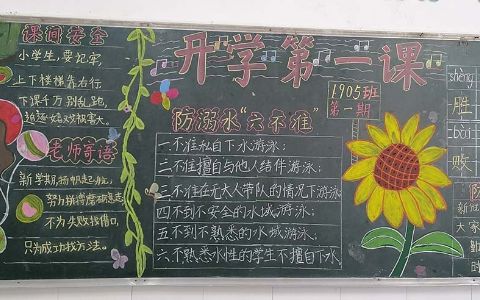 课间安全
小学生,要记牢
上下楼梯靠右行
下课千万别乱跑,
追逐嬉戏损害大。
老师寄语
新学期,扬帆起航,
努力拼搏
不为失败找借口
只为成功找方法。
开学第一课
1905班
第一期
防溺水“六不准”
一不准私自下水游泳;
二不准擅自与他人结伴游泳;
三不准在无大人带队的情况下游泳;
四不到不安全的水域游泳;
五不到不熟悉的水域游泳;
六不熟悉水性的学生不擅自下水
shèng
胜
bài
败
防
新冠
大家
勤